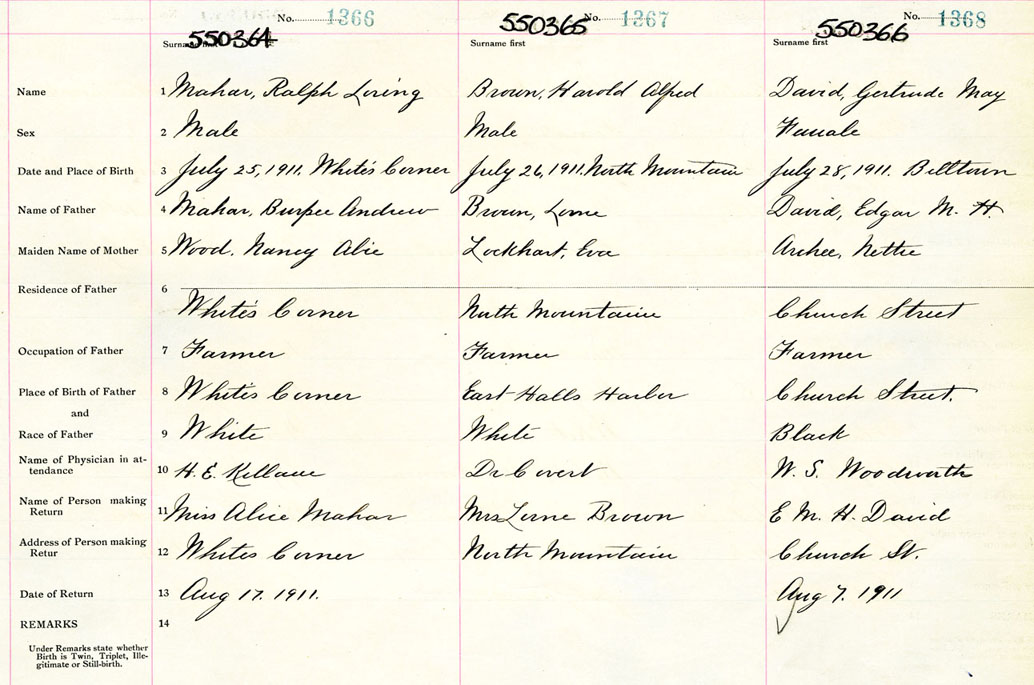 No. 1366 No. 1367 No. 1368
550364 550365 550366
Surname first Surname first Surname first
Name 1 Mahar, Ralph Loring Brown, Harold Alfred David, Gertrude May
Sex 2 Male Male Female
Date and Place of Birth 3 July 25, 1911. White's Corner July 26, 1911. North Mountain July 28, 1911. Billtown
Name of Father 4 Mahar, Burpee Andrew Brown, Lorne David, Edgar M. H.
Maiden Name of Mother 5 Wood, Nancy Alice Lockhart, Eva Nettie
Residence of Father 6
White's Corner North Mountain Church Street
Occupation of Father 7 Farmer Farmer Farmer
Place of Birth of Father 8 White's Corner East Halls Harbor Church Street.
and
Race of Father 9 White White Black
Name of Physician in at-
tendance 10 H. E. Killam Dr Covert W. S. Woodworth
Name of Person making
Return 11 Miss Alice Mahar Mrs Lorne Brown E M. H. David
Address of Person making
Retur 12 Whites Corner North Mountain Church St.
Date of Return 13 Aug 17. 1911. Aug 7. 1911
REMARKS 14
Under Remarks state whether
Birth is Twin, Triplet, Ille-
gitimate or Still-birth.